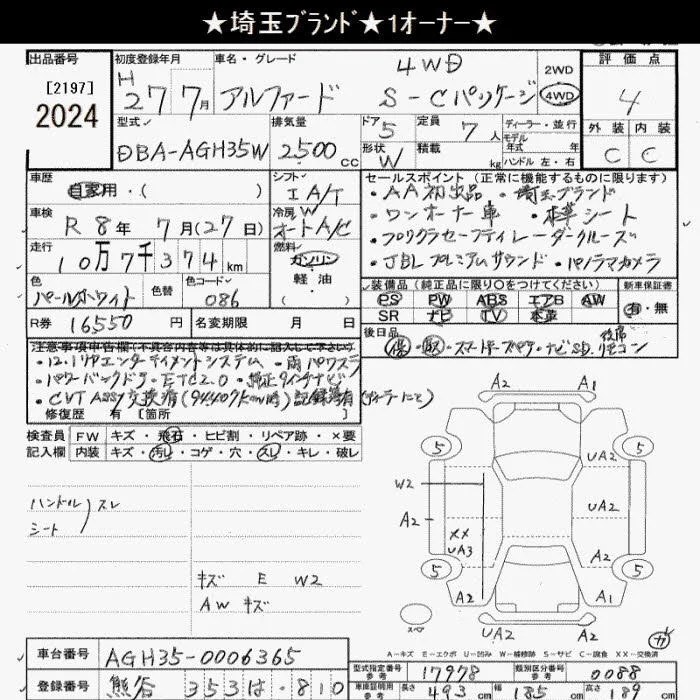 ★埼玉ﾌﾞﾗﾝﾄﾞ★1オーナー★
出品番号
[2197]
2024
初度登録年月
H 27年 7月
車名・グレード
アルファード
4WD
S-Cパッケージ
2WD
4WD
評価点
4
外装 内装
C C
型式
DBA-AGH35W
排気量
2500cc
ドア 5
形状 W
定員 7人
積載 kg
ディーラー・並行
モデル
年式 年
ハンドル 左・右
車歴
自家用・( )
シフト
I A/T
車検
R 8年 7月(27日)
冷房 W
オートA/C
走行
10万7千374km
燃料
ガソリン
軽油
( )
色
パールホワイト
色替
色コード
086
R券 16550円
名変期限 月 日
セールスポイント(正常に機能するものに限ります)
・AA初出品 ・埼玉ブランド
・ワンオーナー車 ・本革シート
・プリクラセーフティレーダークルーズ
・JBLプレミアムサウンド ・パノラマカメラ
装備品(純正品に限り○をつけてください)
新車保証書
PS PW ABS エアB AW
有・無
SR ナビ TV 本革
後日品
保・取・スマートキースペア・ナビSD.後席リモコン
注意事項申告欄(不具合内容等は具体的に記入して下さい)
・12.1リヤエンターテイメントシステム ・両パワスラ
・パワーバックドア ・ETC2.0 ・純正9インチナビ
・CVT ASSY交換済(94407km時)記録簿有(ディーラーにて)
修復歴 有 [箇所 ]
検査員記入欄
FW キズ・飛石・ヒビ割・リペア跡・×要
内装 キズ・汚レ・コゲ・穴・スレ・キレ・破レ
ハンドル
シート スレ
キズ E W2
AW キズ
A2 A1
5 5
UA2
W2
UA2
A2
XX
UA3
A2
5 5
A2 A1
スペア
UA2 A2
A-キズ E-エクボ U-凹み W-補修跡 S-サビ C-腐食 XX-交換済
車台番号 AGH35-0006365
登録番号 熊谷 353 は・810
型式指定番号 参考 17978
類別区分番号 参考 0088
車庫証明用 参考 長さ 493cm 幅 185cm 高さ 189